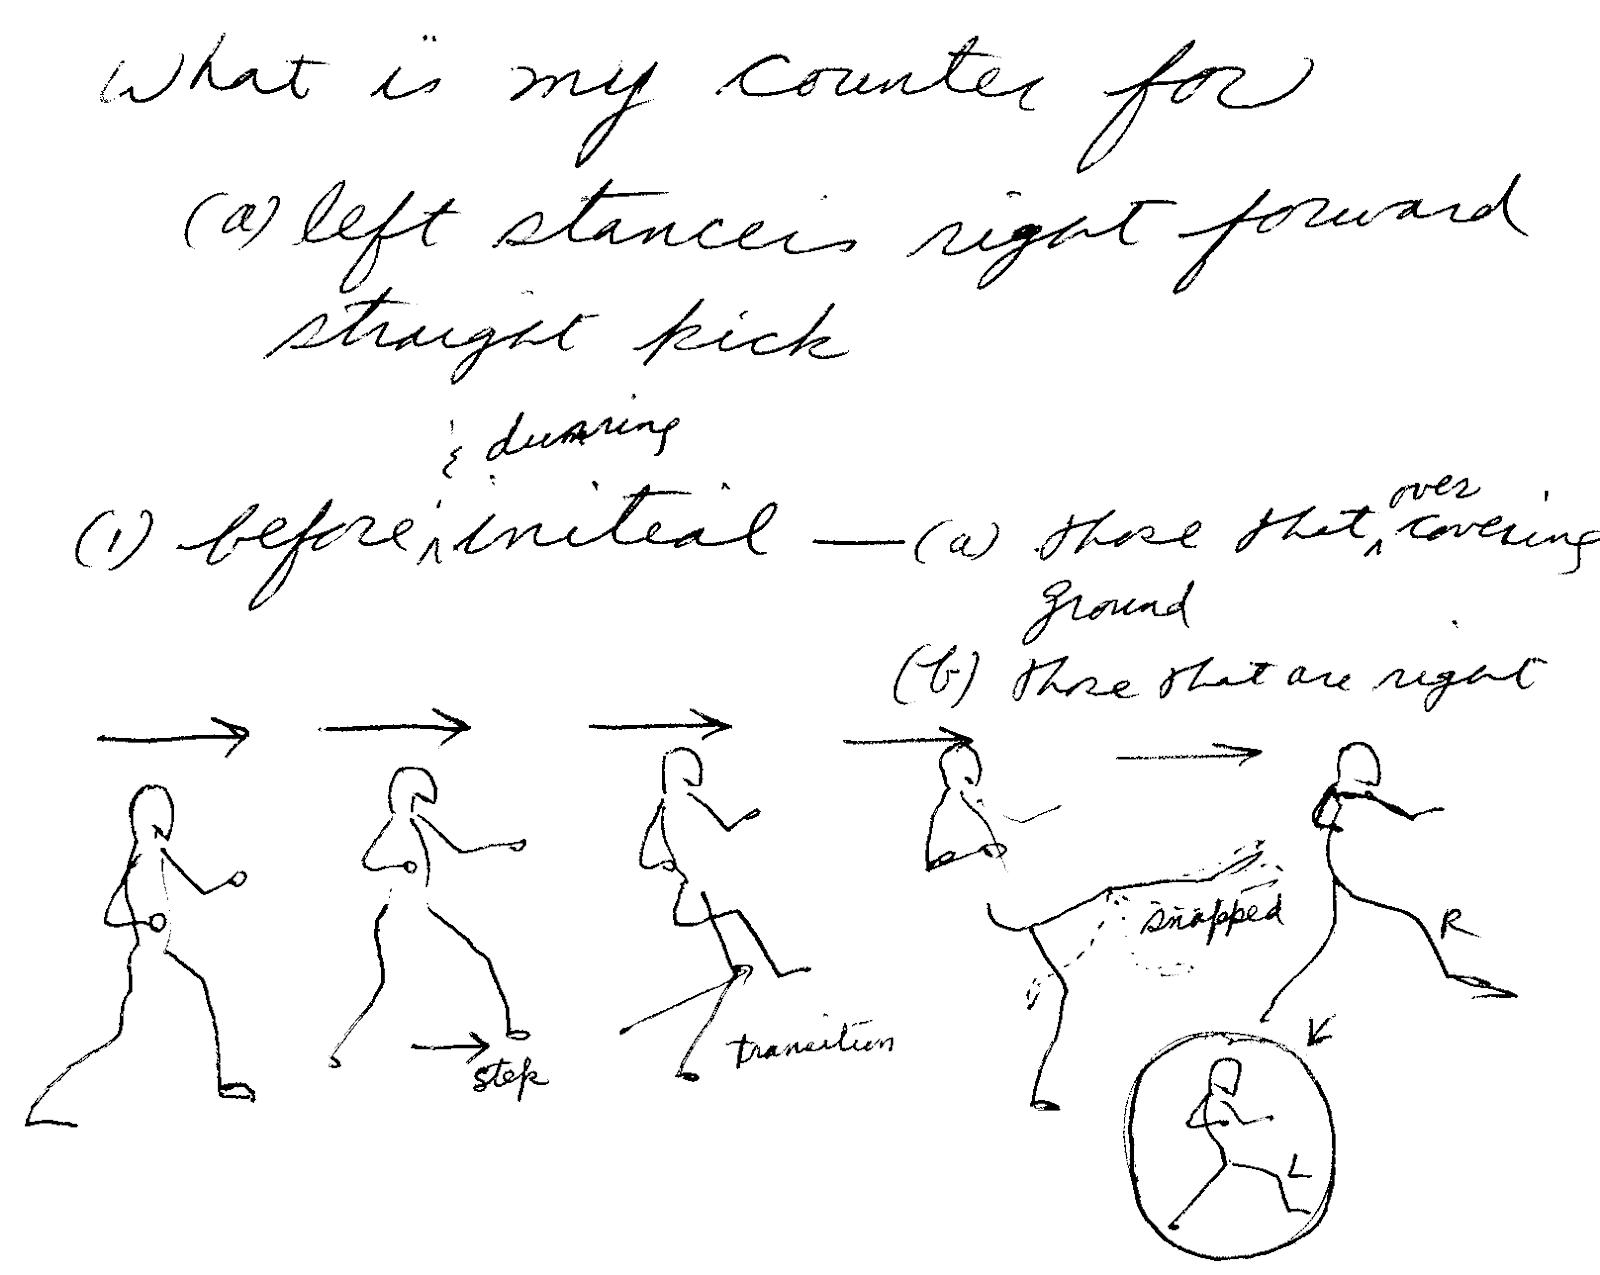 What is my counter for
(a) left stancers right forward
straight kick
& during
(1) before ^ initial — (a) those that ^ over covering
ground
(b) those that are right
snapped
R
step
transition
L